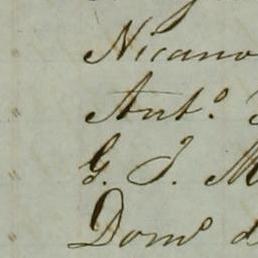 Nicano
Ant.º
G. J. M
Dom.º d